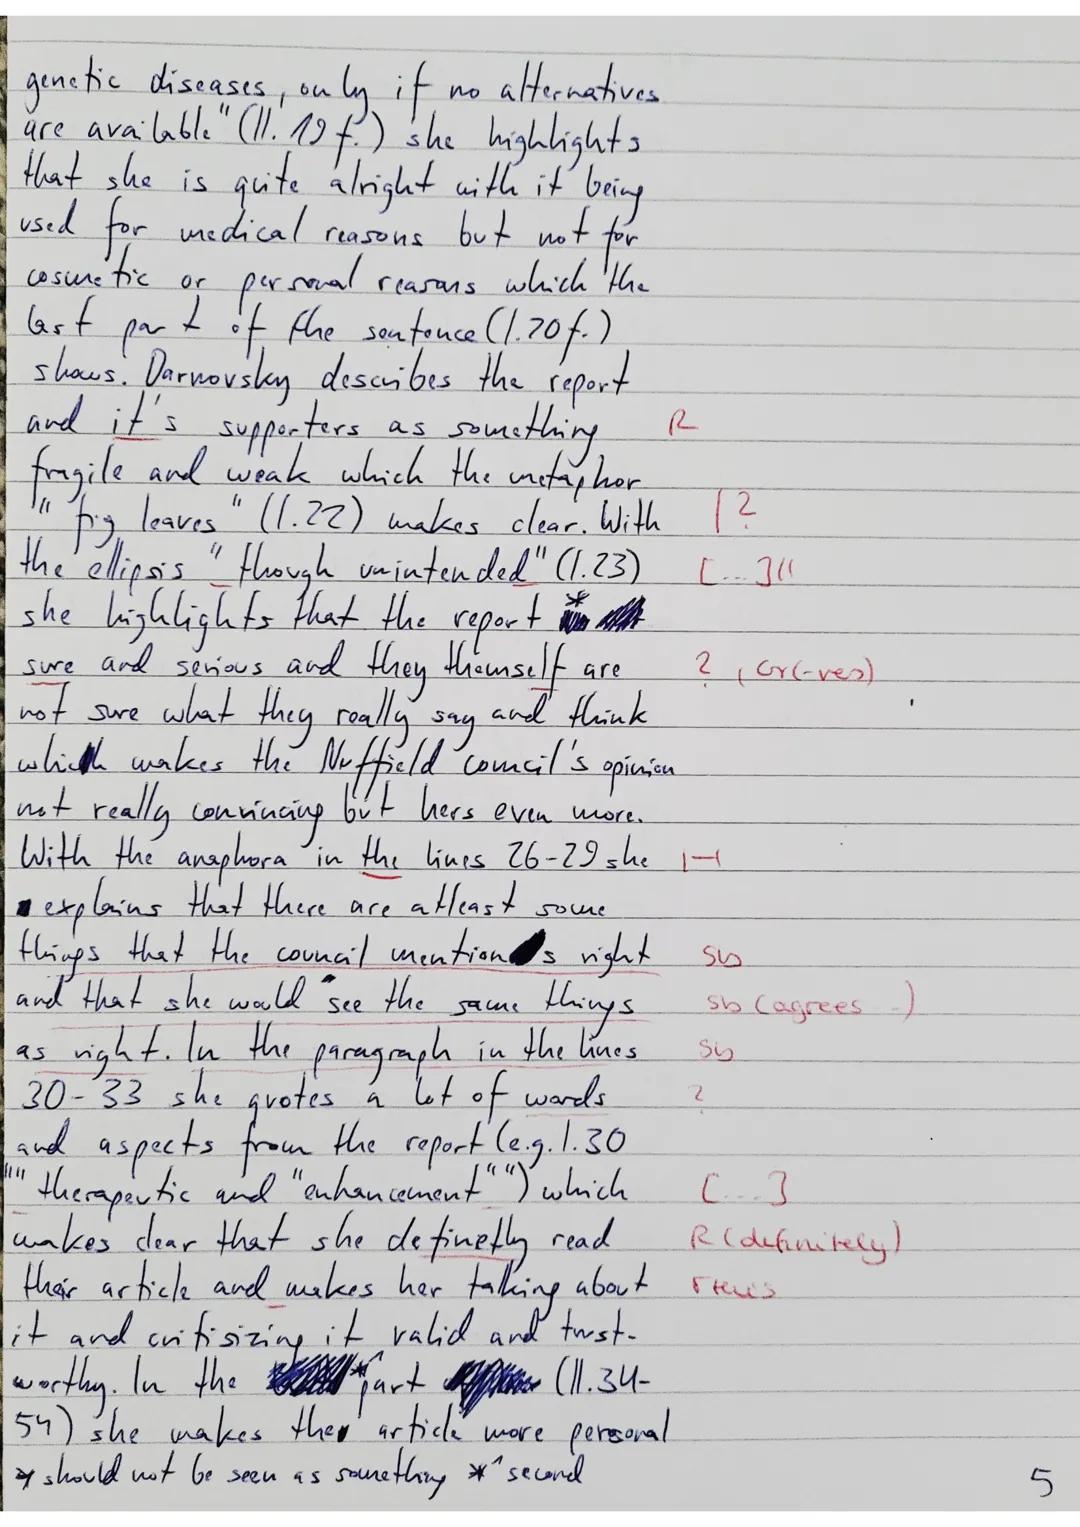 genetic diseases, only if no alternatives
are available" (ll. 19 f.) she highlights
that she is quite alright with it being
used for medical reasons but not for
cosmetic or personal reasons which the
last part of the sentence (l. 20 f.)
shows. Darnovsky describes the report
and it's supporters as something R
fragile and weak which the metaphor
"fig leaves" (l. 22) makes clear. With | ?
the ellipsis "though unintended" (l. 23) [...]"
she highlights that the report *
sure and serious and they themself are ? , Gr(-ves)
not sure what they really say and think
which makes the Nuffield council's opinion
not really convincing but hers even more.
With the anaphora in the lines 26-29 she H
explains that there are atleast some
things that the council mentions right sb
and that she would see the same things sb (agrees -)
as right. In the paragraph in the lines sb
30-33 she quotes a lot of words ?
and aspects from the report (e.g. l. 30
""therapeutic and "enhancement"") which [...]
makes clear that she definetly read R (definitely)
their article and makes her talking about
it and critisizing it valid and trust-
worthy. In the ** part (ll. 34-
54) she makes the article more personal
* should not be seen as something ** second
5